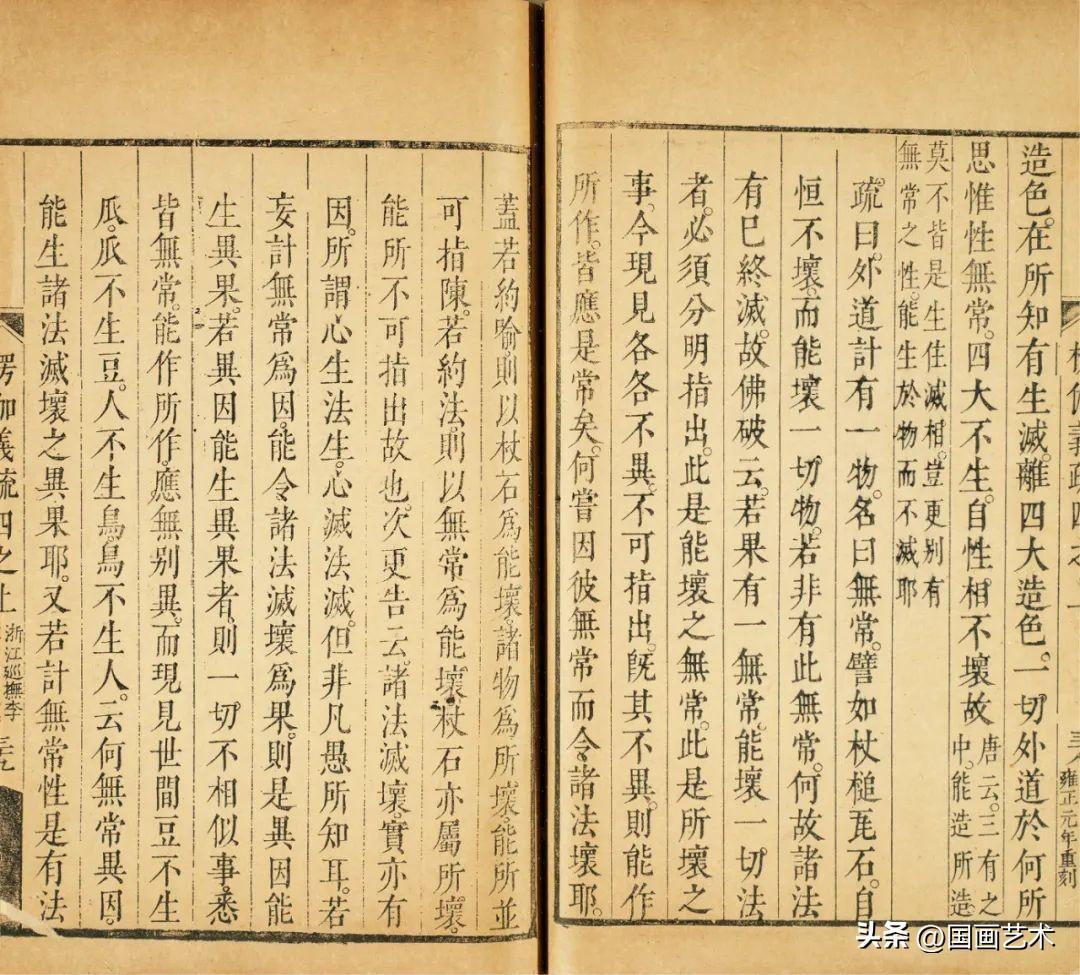 楞伽義疏四之上
三八
雍正元年重刻
造色。在所知有生滅。離四大造色。一切外道於何所
思惟性無常。四大不生。自性相不壞故
唐云。三有之
中。能造所造
莫不皆是生住滅相。豈更别有
無常之性。能生於物而不滅耶
疏曰。外道計有一物。名曰無常。譬如杖槌瓦石。自
恒不壞。而能壞一切物。若非有此無常。何故諸法
有已終滅。故佛破云。若果有一無常。能壞一切法
者。必須分明指出。此是能壞之無常。此是所壞之
事。今現見各各不異。不可指出。旣其不異。則能作
所作。皆應是常矣。何嘗因彼無常而令諸法壞耶。
蓋若約喻。則以杖石爲能壞。諸物爲所壞。能所並
可指陳。若約法。則以無常爲能壞。杖石亦屬所壞。
能所不可指出故也。次更告云。諸法滅壞。實亦有
因。所謂心生法生。心滅法滅。但非凡愚所知耳。若
妄計無常爲因。能令諸法滅壞爲果。則是異因能
生異果。若異因能生異果者。則一切不相似事。悉
皆無常。能作所作。應無别異。而現見世間豆不生
瓜。瓜不生豆。人不生鳥。鳥不生人。云何無常異因。
能生諸法滅壞之異果耶。又若計無常性是有法
楞伽義疏四之上
浙江巡撫李
三九
头条 @国画艺术